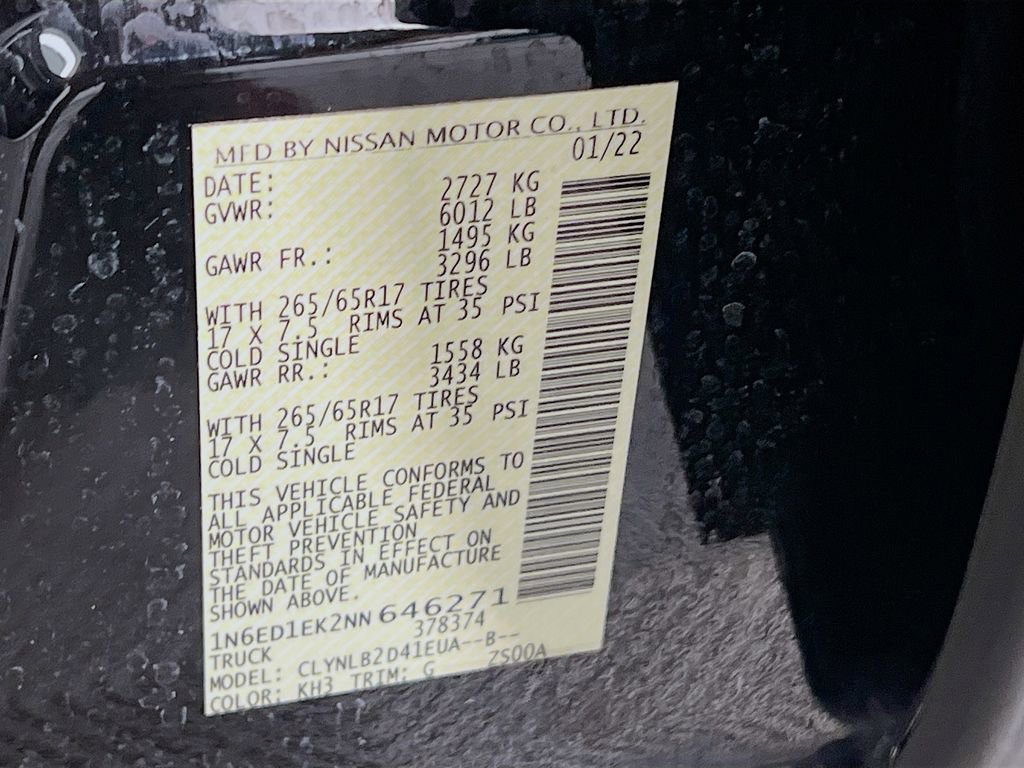 MFD BY NISSAN MOTOR CO., LTD.
DATE: 01/22
GVWR: 2727 KG
6012 LB
GAWR FR.: 1495 KG
3296 LB
WITH 265/65R17 TIRES
17 X 7.5 RIMS AT 35 PSI
COLD SINGLE
GAWR RR.: 1558 KG
3434 LB
WITH 265/65R17 TIRES
17 X 7.5 RIMS AT 35 PSI
COLD SINGLE
THIS VEHICLE CONFORMS TO
ALL APPLICABLE FEDERAL
MOTOR VEHICLE SAFETY AND
THEFT PREVENTION
STANDARDS IN EFFECT ON
THE DATE OF MANUFACTURE
SHOWN ABOVE.
1N6ED1EK2NN646271
TRUCK 378374
MODEL: CLYNLB2D41EUA--B--
COLOR: KH3 TRIM: G ZS00A